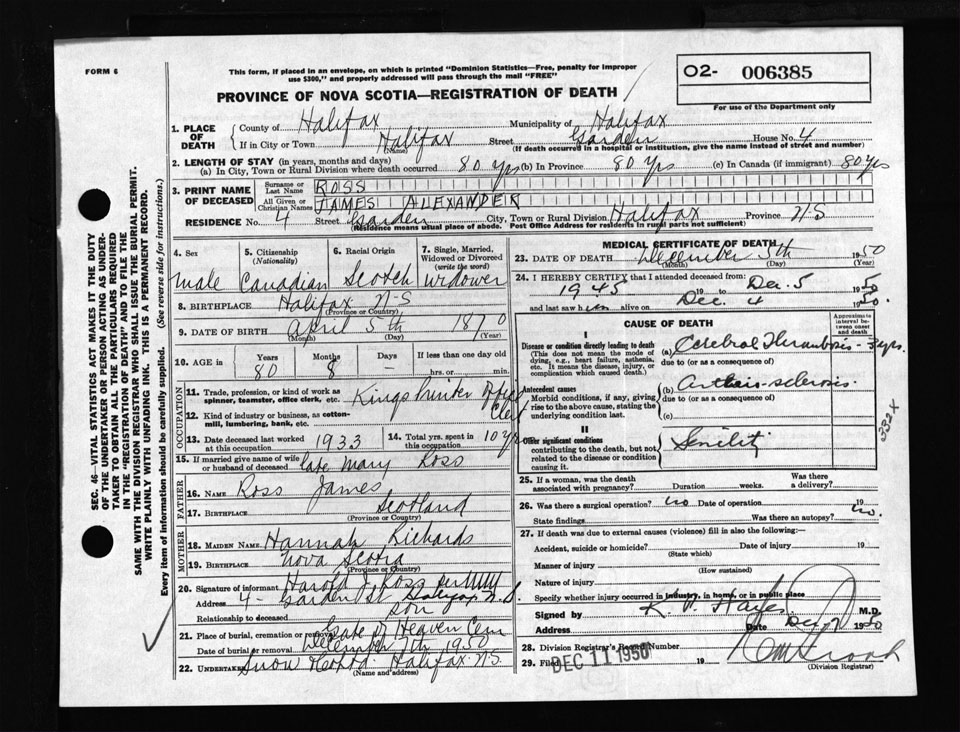 FORM 6
This form, if placed in an envelope, on which is printed "Dominion Statistics—Free, penalty for improper
use $300," and properly addressed will pass through the mail "FREE"
O2- 006385
For use of the Department only
PROVINCE OF NOVA SCOTIA—REGISTRATION OF DEATH
1. PLACE OF DEATH
County of Halifax Municipality of Halifax
If in City or Town Halifax Street Garden House No. 4
(Name) (If death occurred in a hospital or institution, give the name instead of street and number)
2. LENGTH OF STAY (in years, months and days)
(a) In City, Town or Rural Division where death occurred 80 yrs (b) In Province 80 yrs (c) In Canada (if immigrant) 80 yrs
3. PRINT NAME OF DECEASED
Surname or Last Name ROSS
All Given or Christian Names JAMES ALEXANDER
RESIDENCE No. 4 Street Garden City, Town or Rural Division Halifax Province N S
(Residence means usual place of abode. Post Office Address for residents in rural parts not sufficient)
4. Sex
5. Citizenship (Nationality)
6. Racial Origin
7. Single, Married, Widowed or Divorced (write the word)
male Canadian Scotch Widower
8. BIRTHPLACE Halifax N-S
(Province or Country)
9. DATE OF BIRTH April 5th 1870
(Month) (Day) (Year)
10. AGE in
Years Months Days If less than one day old
80 8 — hrs. or min.
OCCUPATION
11. Trade, profession or kind of work as spinner, teamster, office clerk, etc. Kings Printer Office Clerk
12. Kind of industry or business, as cotton-mill, lumbering, bank, etc.
13. Date deceased last worked at this occupation 1933
14. Total yrs. spent in this occupation 10 yrs
15. If married give name of wife or husband of deceased late Mary Ross
FATHER
16. NAME Ross James
17. BIRTHPLACE Scotland
(Province or Country)
MOTHER
18. MAIDEN NAME Hannah Richards
19. BIRTHPLACE Nova Scotia
(Province or Country)
20. Signature of informant Harold J Ross per
Address 4- Garden St Halifax N.S.
Relationship to deceased son
21. Place of burial, cremation or removal Gate of Heaven Cem
Date of burial or removal December 7th 1950
22. Undertaker Snow Halifax N.S.
(Name and address)
MEDICAL CERTIFICATE OF DEATH
23. DATE OF DEATH December 5th 1950
(Month) (Day) (Year)
24. I HEREBY CERTIFY that I attended deceased from:
1945 19 to Dec. 5 1950
and last saw him alive on Dec 4 1950.
CAUSE OF DEATH
Approximate interval between onset and death
I
Disease or condition directly leading to death
(This does not mean the mode of dying, e.g., heart failure, asthenia, etc. It means the disease, injury, or complication which caused death.)
(a) Cerebral Thrombosis - 3 yrs.
due to (or as a consequence of)
Antecedent causes
Morbid conditions, if any, giving rise to the above cause, stating the underlying condition last.
(b) Arterio-sclerosis.
due to (or as a consequence of)
(c)
332 X
II
Other significant conditions
contributing to the death, but not related to the disease or condition causing it.
Senility
25. If a woman, was the death associated with pregnancy? Duration weeks. Was there a delivery?
26. Was there a surgical operation? no Date of operation 19
State findings Was there an autopsy? no.
27. If death was due to external causes (violence) fill in also the following:
Accident, suicide or homicide? Date of injury 19
(State which)
Manner of injury
(How sustained)
Nature of injury
Specify whether injury occurred in industry, in home, or in public place
Signed by M.D.
Address Date Dec 7 1950
28. Division Registrar's Record Number
29. Filed DEC 11 1950 19
(Division Registrar)
SEC. 46—VITAL STATISTICS ACT MAKES IT THE DUTY
OF THE UNDERTAKER OR PERSON ACTING AS UNDER-
TAKER TO OBTAIN ALL THE PARTICULARS REQUIRED
IN THE "REGISTRATION OF DEATH" AND TO FILE THE
SAME WITH THE DIVISION REGISTRAR WHO SHALL ISSUE THE BURIAL PERMIT.
WRITE PLAINLY WITH UNFADING INK. THIS IS A PERMANENT RECORD.
Every item of information should be carefully supplied. (See reverse side for instructions.)